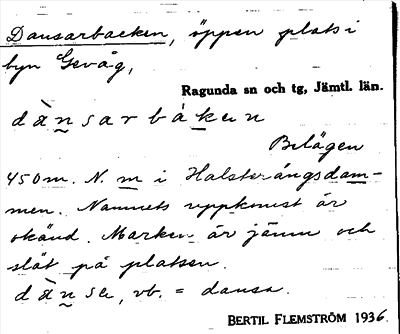 Dansarbacken, öppen plats i
byn Gevåg,
Ragunda sn och tg, Jämtl. län.
dạ̀nsarbáken
Belägen
450 m. N. m i Halsterångsdam-
men. Namnets uppkomst är
okänd. Marken är jämn och
slät på platsen.
dạ̀nsa, vb. = dansa.
BERTIL FLEMSTRÖM 1936.